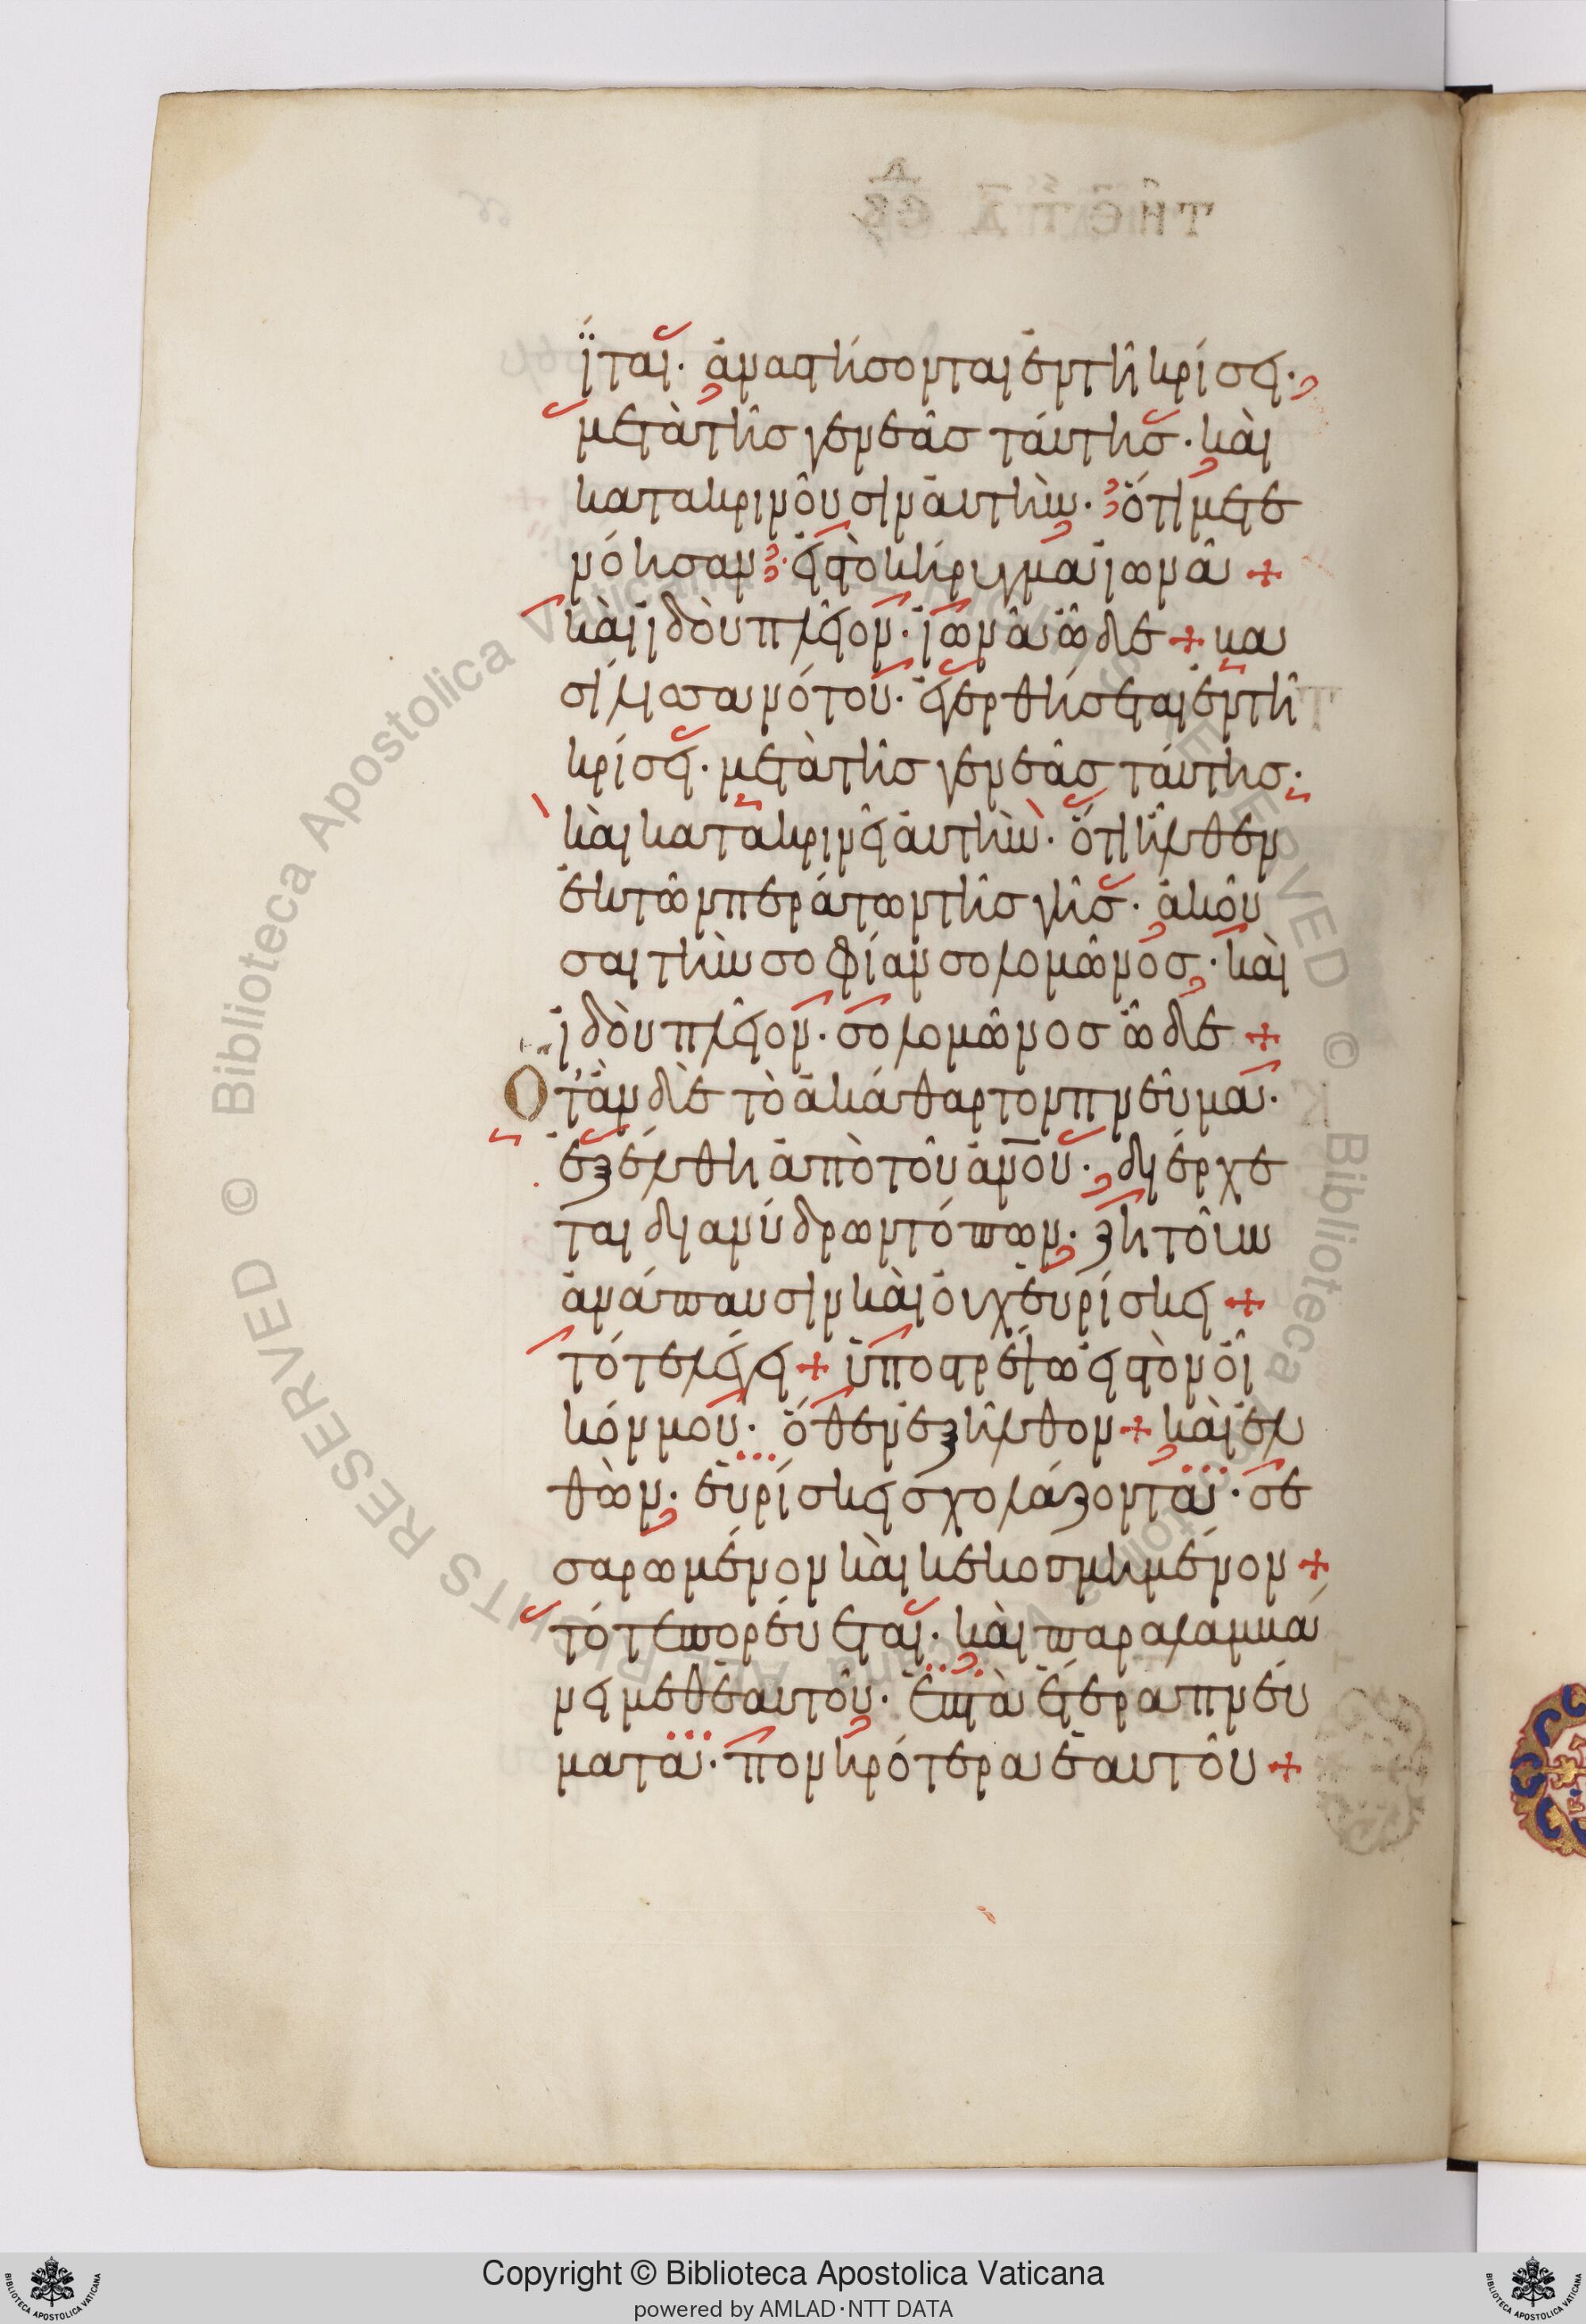 ΐται· ἀναστήσονται ἐν τῆ κρίσει·
μετὰ τῆσ γενεᾶσ τάυτησ· κὰι
κατακρινοῦσιν ἀυτὴν· ὅτι μετε
νόησαν· εἰσ τὸ κήρυγμα ἰωνᾶ +
κὰι ἰδὸυ πλεῖον· ἰωνᾶ ὧδε + βα
σίλισσα νότου· ἐγερθήσεται ἐν τῆ
κρίσει· μετὰ τῆσ γενεᾶσ τάυτησ·
κὰι κατακρινεῖ ἀυτὴν· ὅτι ἦλθεν
ἐκ τῶν περάτων τῆσ γῆσ· ἀκοῦ
σαι τὴν σοφίαν σολομῶνοσ· κὰι
ἰδὸυ πλεῖον· σολομῶνοσ ὧδε +
Ὅταν δὲ τὸ ἀκάθαρτον πνεῦμα·
ἐξέλθη ἀπὸ τοῦ ἀνου· διέρχε
ται δι ανύδρων τόπων· ζητοῦν
ἀνάπαυσιν κὰι ὀυχ ἑυρίσκει +
τότε λέγει + ὑποστρέψω εἰσ τὸν οἶ
κόν μου· ὅθεν ἐξῆλθον + κὰι ἐλ
θὼν· ἑυρίσκει σχολάζοντα· σε
σαρωμένον κὰι κεκοσμημένον +
τότε πορέυεται· κὰι παραλαμβά
νει μεθ ἑαυτοῦ· ἑπτὰ ἕτερα πνέυ
ματα· πονηρότερα ἑαυτοῦ +
© Biblioteca Apostolica Vaticana ALL RIGHTS RESERVED
Copyright © Biblioteca Apostolica Vaticana
powered by AMLAD·NTT DATA